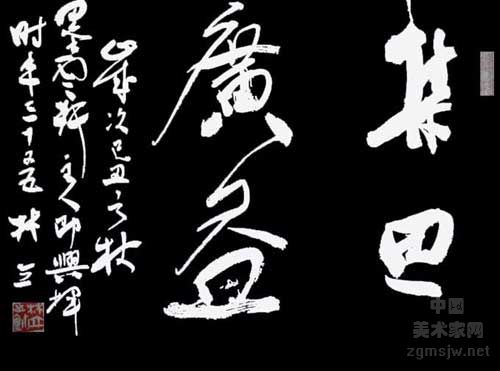 集思
廣益
歲次己丑之秋
墨軒主人即興揮
时年三十又五林立
中国
美术家网
zgmsjw.net